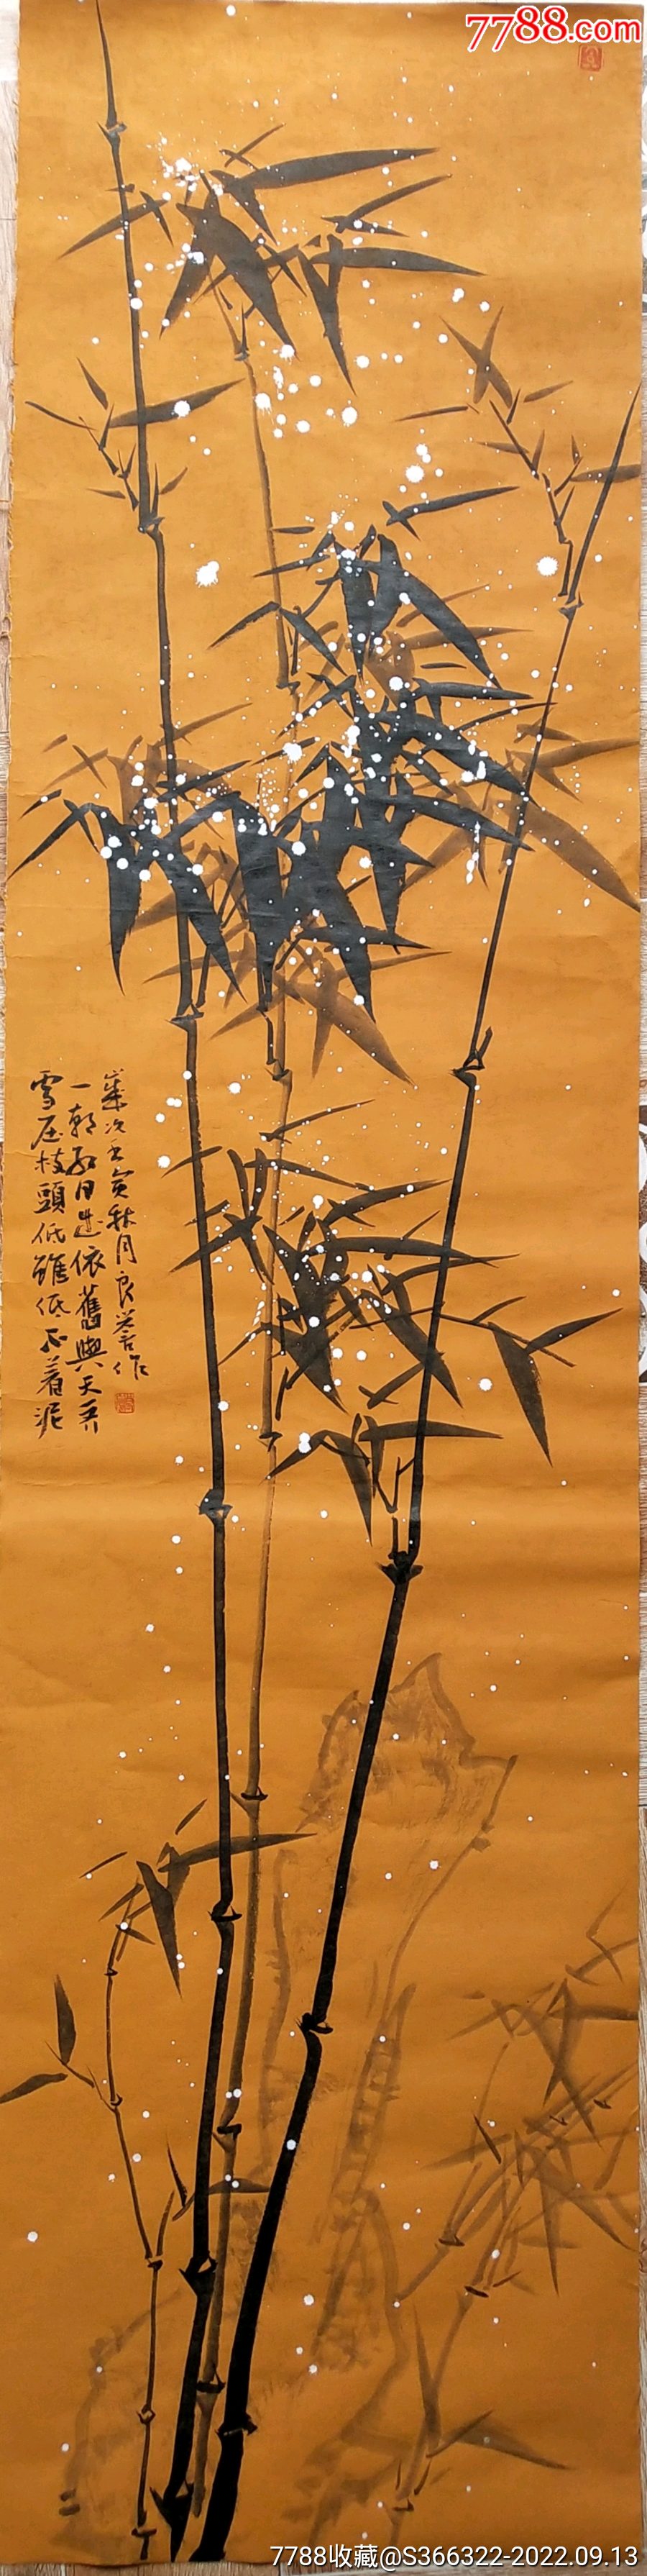 7788.com
雪压枝頭低雖低不着泥
一朝红日出依舊與天齐
歲次壬寅秋月良誉作
7788收藏@S366322-2022.09.13